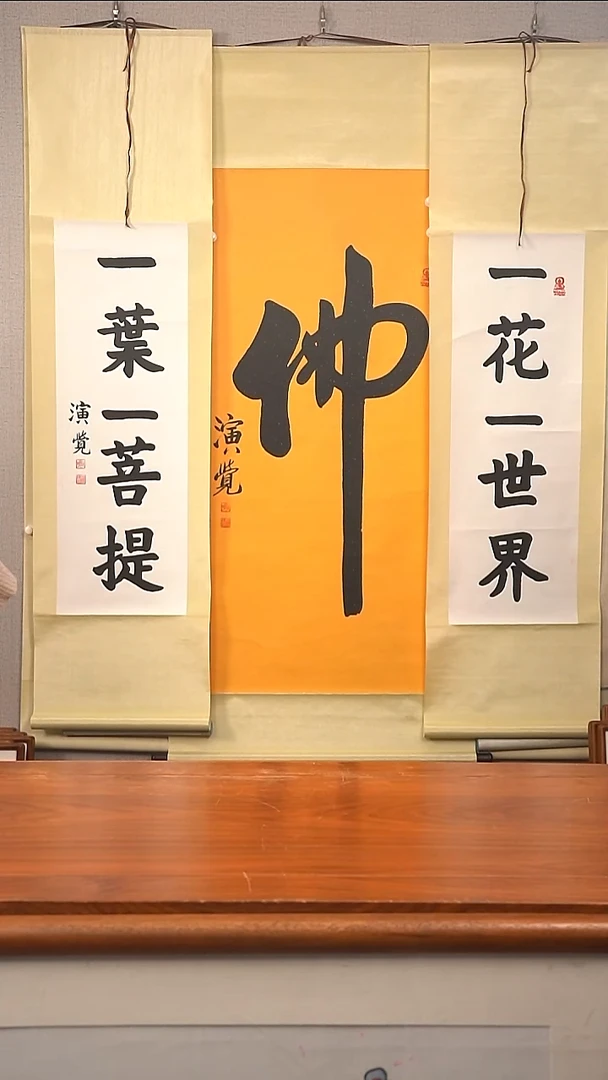 一花一世界
佛
演覺
一葉一菩提
演覺